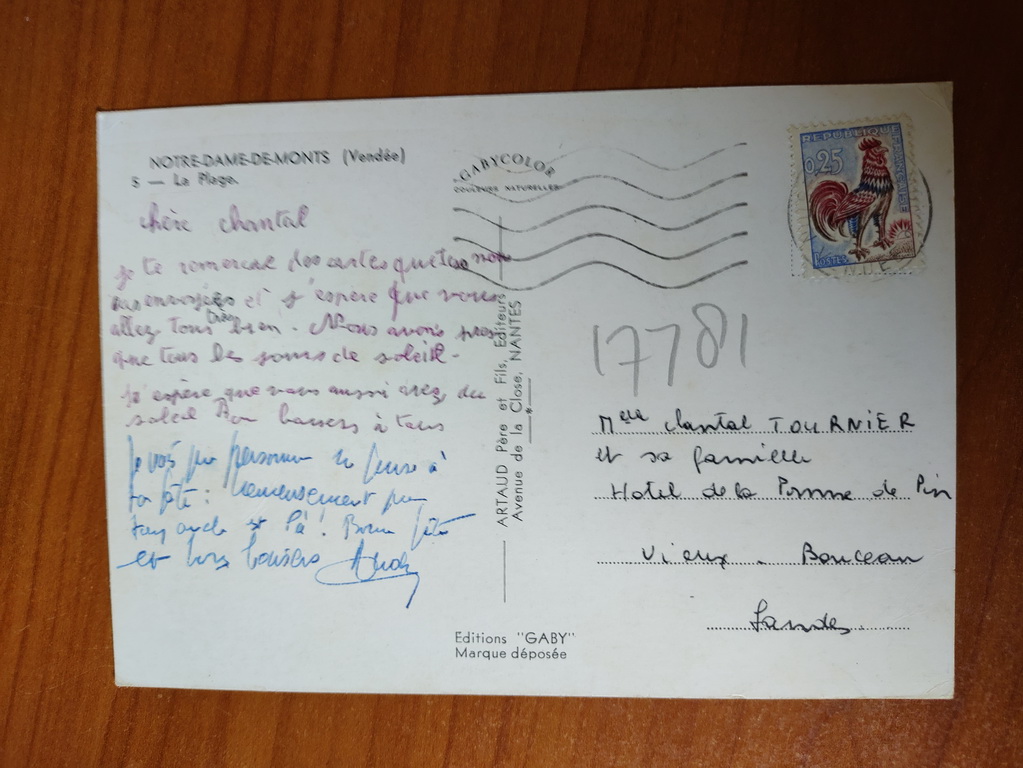 NOTRE-DAME-DE-MONTS (Vendée)
5 — La Plage.
GABYCOLOR
COULEURS NATURELLES
REPUBLIQUE FRANÇAISE
0,25
POSTES
chère chantal
je te remercie des cartes que tu nous
as envoyées et j'espère que vous
allez tous très bien. Nous avons pres
que tous les jours de soleil.
j'espère que vous aussi avez du
soleil Bon baisers à tous
Je vois que personne ne pense à
ta fête : heureusement que
ton oncle est là ! Bonne fête
et bons baisers
ARTAUD Père et Fils, Editeurs
Avenue de la Close, NANTES
17781
Melle Chantal TOURNIER
et sa famille
Hotel de la Pomme de Pin
Vieux - Boucau
Landes
Editions "GABY"
Marque déposée